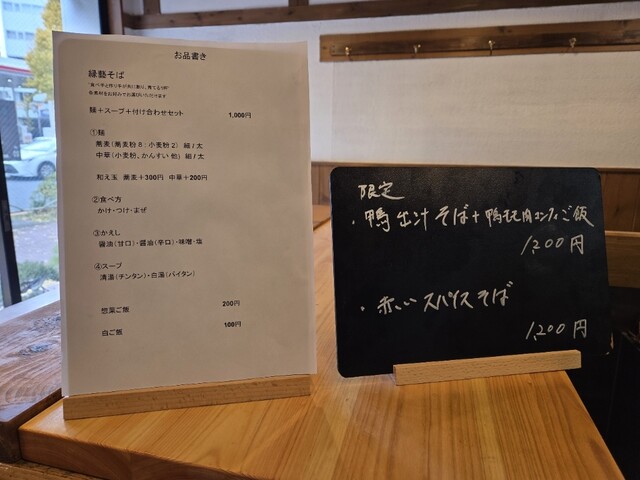 お品書き
緑藝そば
麺＋スープ＋付け合わせセット 1,000円
①麺
蕎麦（蕎麦粉８：小麦粉２） 細／太
中華（小麦粉、かんすい他） 細／太
和え玉 蕎麦＋300円 中華＋200円
②食べ方
かけ・つけ・まぜ
③かえし
醤油（甘口）・醤油（辛口）・味噌・塩
④スープ
清湯（チンタン）・白湯（パイタン）
惣菜ご飯 200円
白ご飯 100円
限定
・鴨出汁そば＋鴨モモ肉コンフィご飯
1,200円
・赤いスパイスそば
1,200円